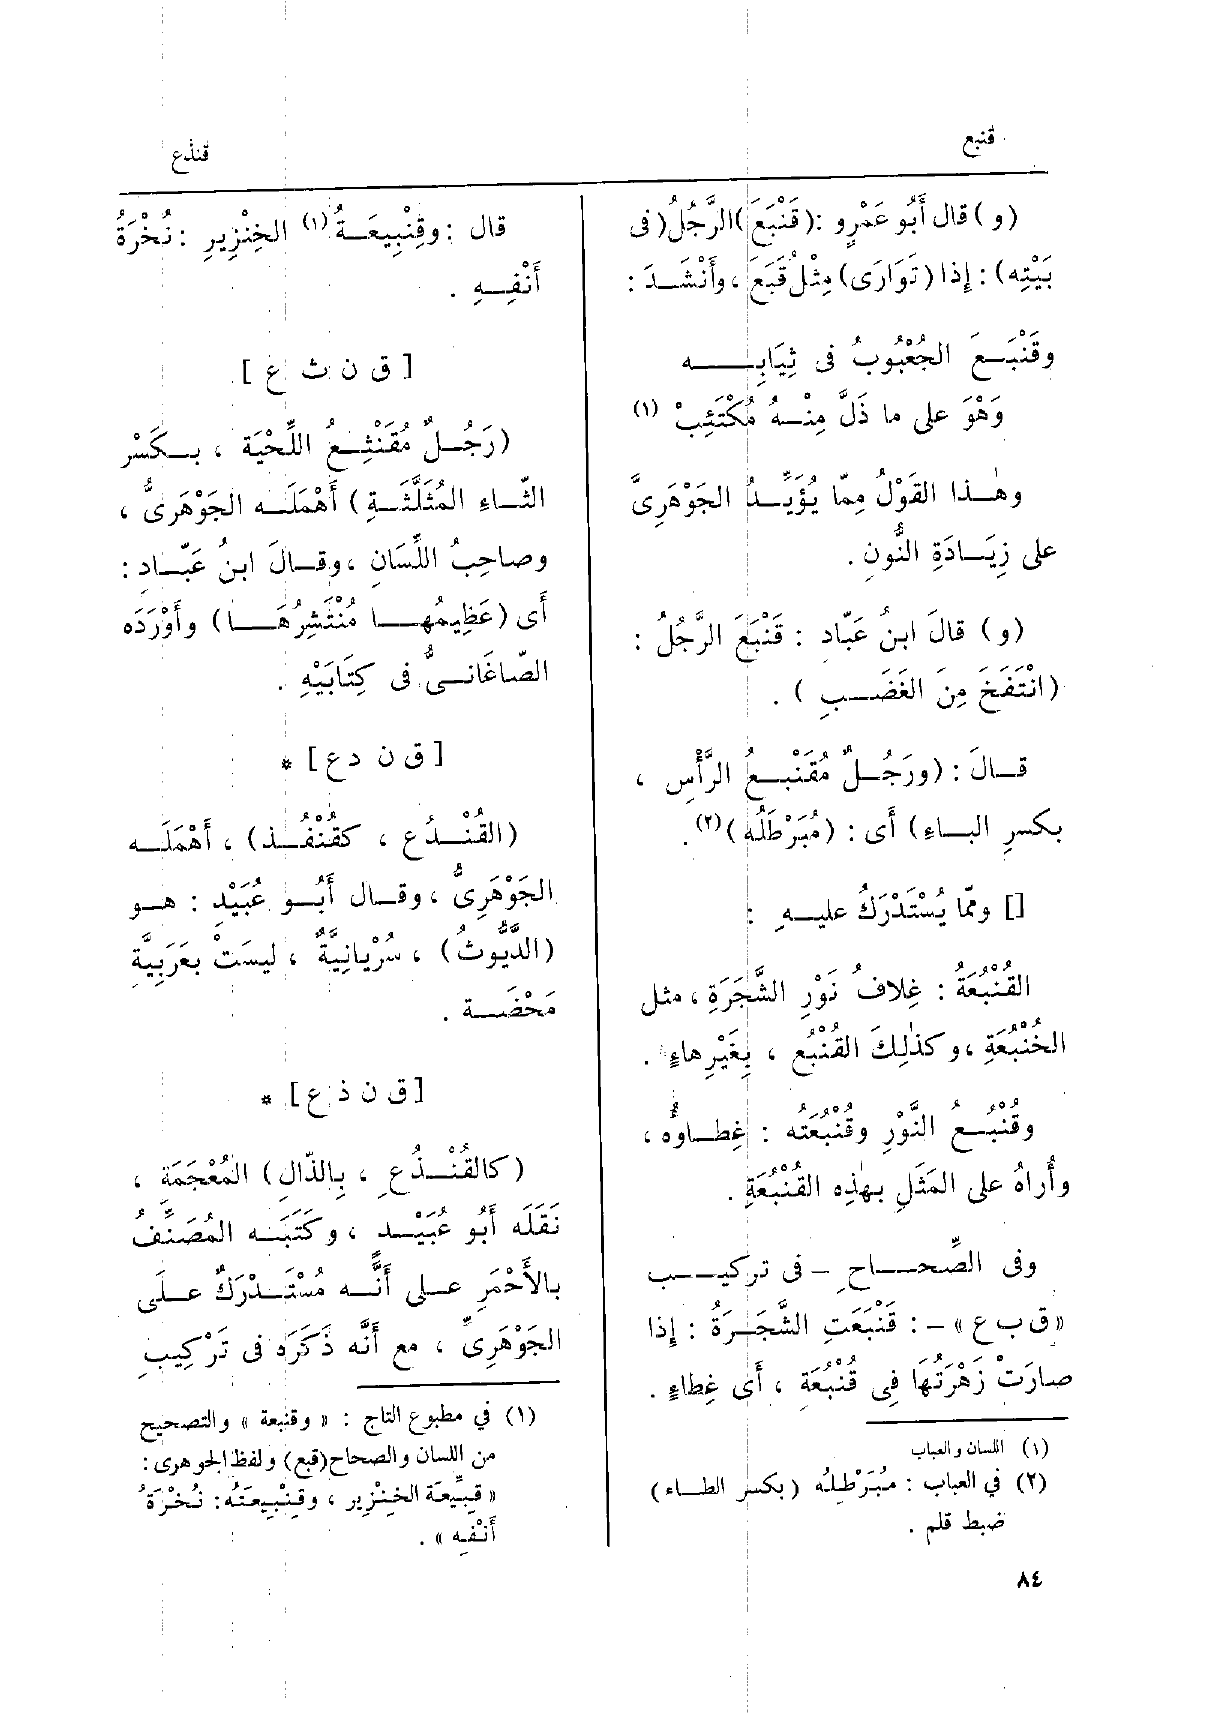 قنبع
قنذع
(و) قال أَبُو عَمْرٍو : (قَنْبَعَ) الرَّجُلُ (فى
بَيْتِه) : إِذا (تَوَارَى) مِثْلُ قَبَعَ ، وأَنْشَدَ :
وقَنْبَعَ الجُعْبُوبُ فى ثِيَابِه
وَهْوَ على ما ذَلَّ مِنْهُ مُكْتَئِبْ (١)
وهٰذا القَوْلُ مِمّا يُؤَيِّدُ الجَوْهَرِىَّ
على زِيَادَةِ النُّونِ .
(و) قالَ ابنُ عَبّاد : قَنْبَعَ الرَّجُلُ :
(انْتَفَخَ مِنَ الغَضَبِ ) .
قالَ : (ورَجُلٌ مُقَنْبِعُ الرَّأْسِ ،
بكسرِ الباء) أَى : (مُبَرْطَلُه)(٢) .
[] وممّا يُسْتَدْرَكُ عليهِ :
القُنْبُعَةُ : غِلافُ نَوْرِ الشَّجَرَةِ ، مثل
الخُنْبُعَةِ ، وكذٰلِكَ القُنْبُع ، بِغَيْرِ هاءٍ .
وقُنْبُعُ النَّوْرِ وقُنْبُعَتُه : غِطاوُه ،
وأُراهُ على المَثَلِ بهٰذِه القُنْبُعَةِ .
وفى الصِّحاحِ - فى تركيب
«ق ب ع» - : قَنْبَعَتِ الشَّجَرَةُ : إِذا
صارَتْ زَهْرَتُهَا فِى قُنْبُعَة ، أَى غِطاءٍ .
(١) اللسان والعباب
(٢) في العباب : مُبَرْطِلُه (بكسر الطاء)
ضبط قلم .
٨٤
قال : وقِنْبِيعَةُ(١) الخِنْزِيرِ : نُخْرَةُ
أَنْفِهِ .
[ ق ن ث ع ]
(رَجُلٌ مُقَنْثِعُ اللِّحْيَة ، بكَسْر
الثَّاءِ المُثَلَّثَةِ) أَهْمَلَه الجَوْهَرِىُّ ،
وصاحِبُ اللِّسَانِ ، وقالَ ابنُ عَبّادٍ :
أَى (عَظِيمُها مُنْتَشِرُهَا) وأَوْرَدَه
الصّاغَانىُّ فى كِتَابَيْهِ .
[ق ن دع] *
(القُنْدُع ، كقُنْفُذ) ، أَهْمَلَه
الجَوْهَرِىُّ ، وقال أَبُو عُبَيْدٍ : هو
(الدَّيُّوثُ) ، سُرْيانِيَّةٌ ، ليسَتْ بعَرَبِيَّةٍ
مَحْضَة .
[ق ن ذ ع] *
(كالقُنْذُعِ ، بِالذّالِ) المُعْجَمَةِ ،
نَقَلَه أَبُو عُبَيْد ، وكَتَبَه المُصَنِّفُ
بالأَحْمَرِ على أَنَّه مُسْتَدْرَكٌ علَى
الجَوْهَرِىِّ ، مع أَنَّه ذَكَرَه فى تَرْكِيبِ
(١) في مطبوع التاج : « وقنبعة » والتصحيح
من اللسان والصحاح (قبع) ولفظ الجوهرى :
« قِبِّيعَة الخنزير ، وقِنْبِيعَتُه : نُخْرَةُ
أَنْفِه » .